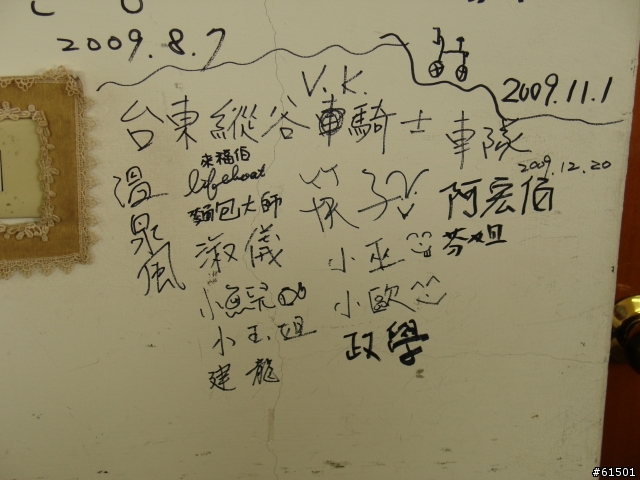 2009.8.7
V.K.
2009.11.1
台東縱谷車騎士 車隊
2009.12.20
溫泉風
來福伯
lifeboat
麵包大師
淑儀
筷子
阿宏伯
芬姐
小巫
小歐
小玉姐
政學
建龍
#61501